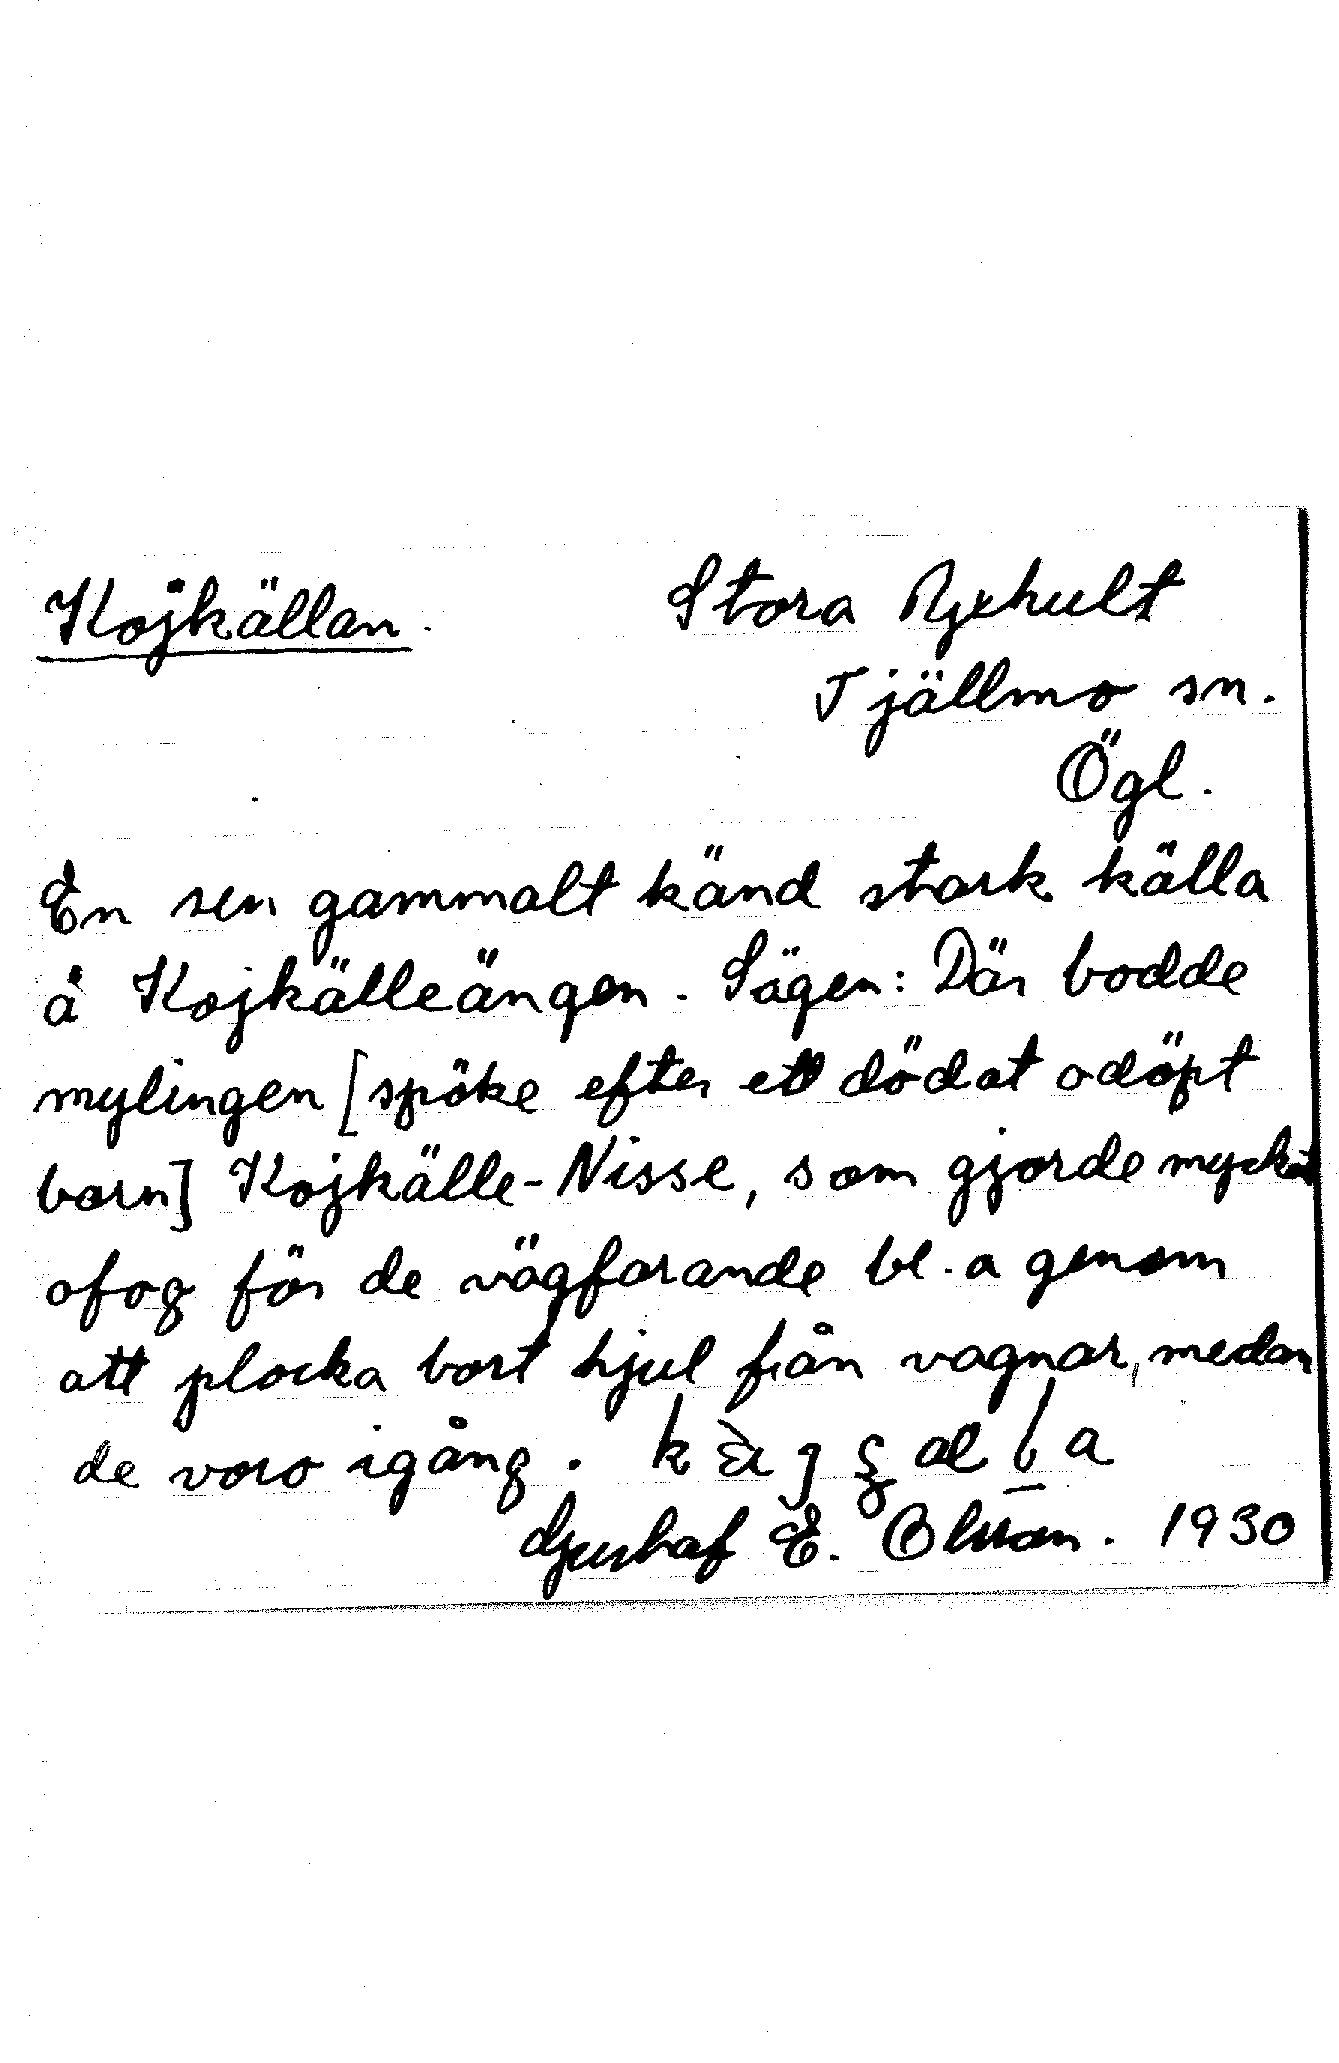 Kojkällan. Stora Ryxhult
Tjällmo sn.
Ögl.
En sen gammalt känd stark källa
å Kojkälleängen. Sägen: Där bodde
mylingen [spöke efter ett dödat odöpt
barn] Kojkälle-Nisse, som gjorde mycket
ofog för de vägfarande bl.a genom
att plocka bort hjul från vagnar, medan
de voro igång.
Gustaf E. Olsson. 1930